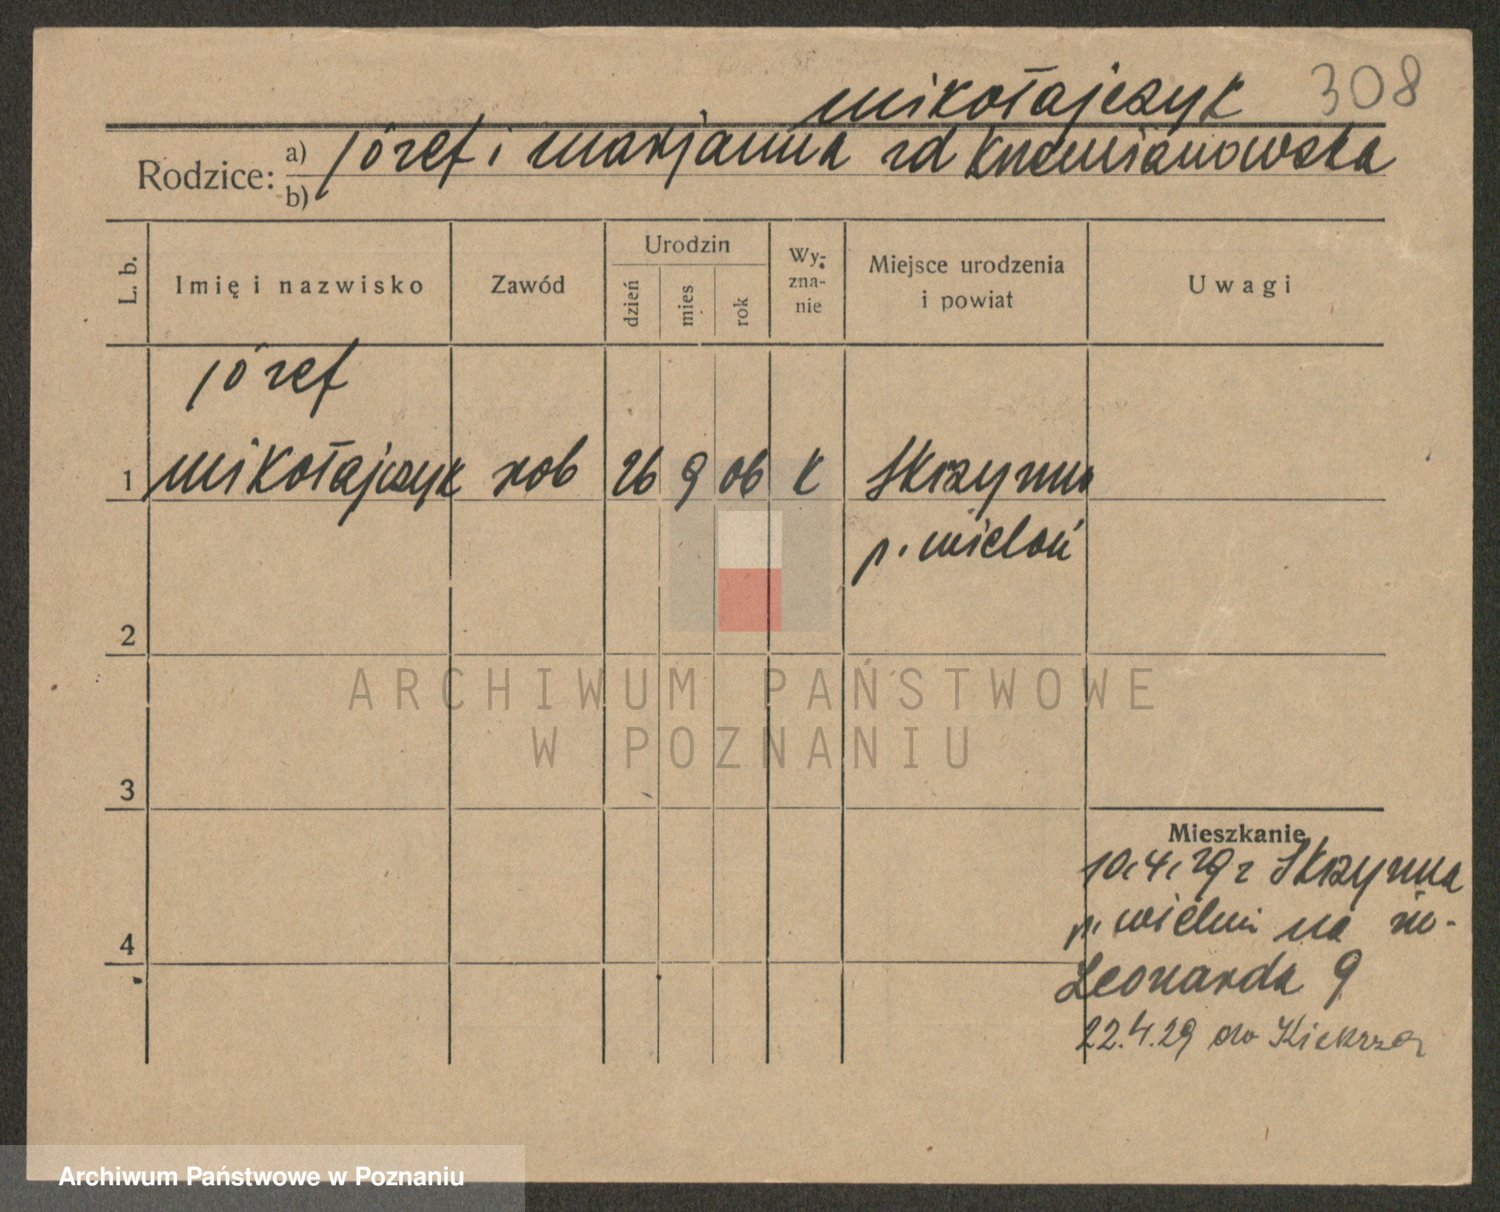 308
mikołajczyk
Rodzice: a) józef i marjanna zd
b)
L. b.
Imię i nazwisko
Zawód
Urodzin
dzień
mies
rok
Wy-
zna-
nie
Miejsce urodzenia
i powiat
Uwagi
józef
1 mikołajczyk rob 26 9 06 k Skrzynno
p. wieluń
2
3
4
Mieszkanie
10.4.29 z Skrzynna
p. wieluń na
Leonarda 9
22.4.29 do Kiekrza
ARCHIWUM PAŃSTWOWE
W POZNANIU
Archiwum Państwowe w Poznaniu